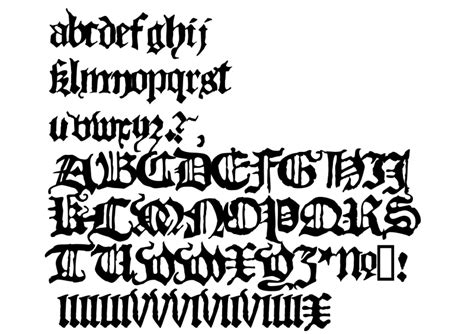 abcdefghij
klmnopqrst
uvwxyz.?~,
ABCDEFGHIJ
KLMNOPQRS
TUVWXYZ*№!
IIIIIIIVVVIVIIVIIIIX